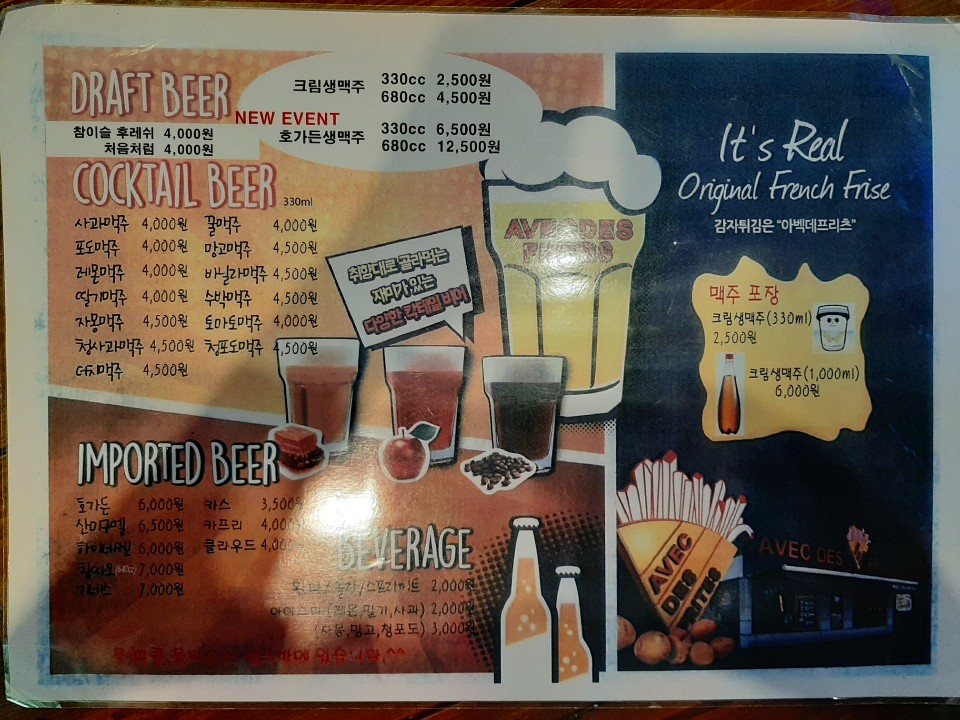 DRAFT BEER
크림생맥주 330cc 2,500원
680cc 4,500원
NEW EVENT
호가든생맥주 330cc 6,500원
680cc 12,500원
참이슬 후레쉬 4,000원
처음처럼 4,000원
COCKTAIL BEER 330ml
사과맥주 4,000원 꿀맥주 4,000원
포도맥주 4,000원 망고맥주 4,500원
레몬맥주 4,000원 바닐라맥주 4,500원
딸기맥주 4,000원 수박맥주 4,500원
자몽맥주 4,500원 토마토맥주 4,000원
청사과맥주 4,500원 청포도맥주 4,500원
더치맥주 4,500원
취향대로 골라먹는
재미가 있는
다양한 칵테일 비어
AVEC DES
FRITES
IMPORTED BEER
호가든 6,000원 카스 3,500원
산미구엘 6,500원 카프리 4,000원
하이네켄 6,000원 클라우드 4,000
칭따오(640ml) 7,000원
기네스 7,000원
BEVERAGE
환타/콜라/스프라이트 2,000원
아이스티(레몬,딸기,사과) 2,000원
(자몽,망고,청포도) 3,000원
있습니다.^^
It's Real
Original French Frise
감자튀김은 "아벡데프리츠"
맥주 포장
크림생맥주(330ml)
2,500원
크림생맥주(1,000ml)
6,000원
AVEC
DES
AVEC DES